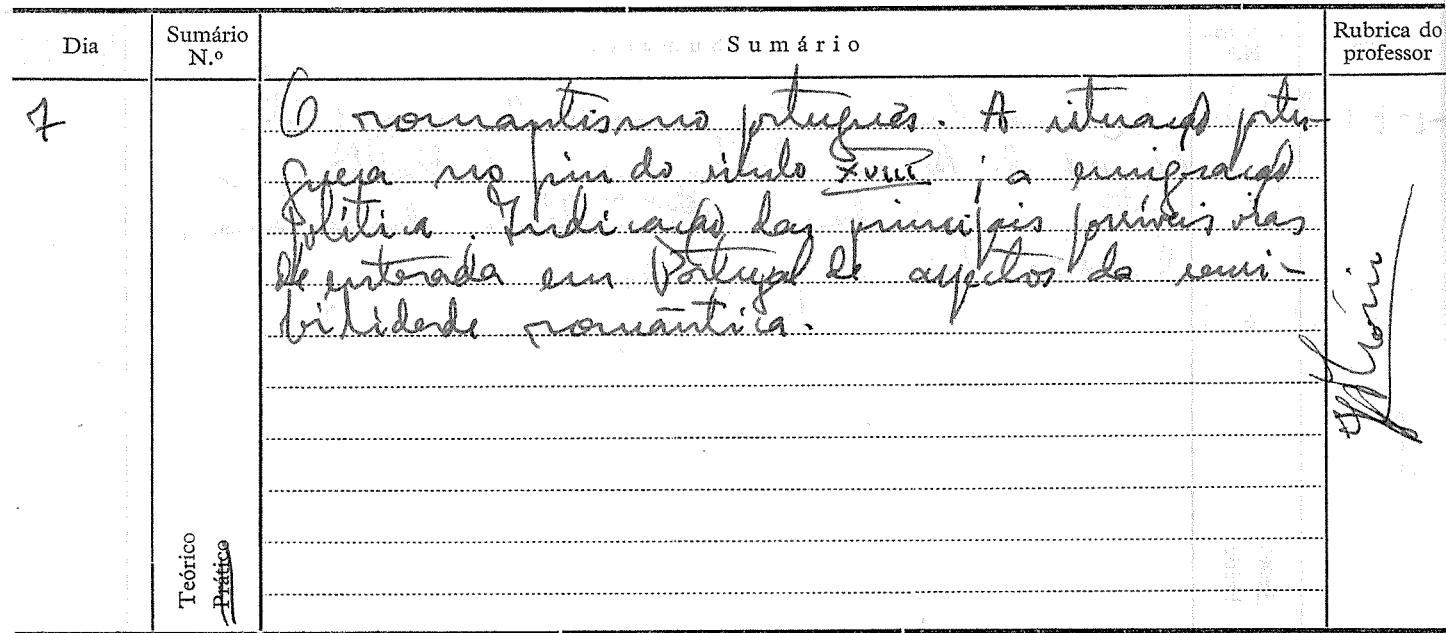 Dia
Sumário N.º
Sumário
Rubrica do professor
7
O romantismo português. A situação portu-
guesa no fim do século XVIII; a emigração
política. Indicação das principais possíveis vias
de entrada em Portugal de aspectos da sensi-
bilidade romântica.
Teórico
Prático